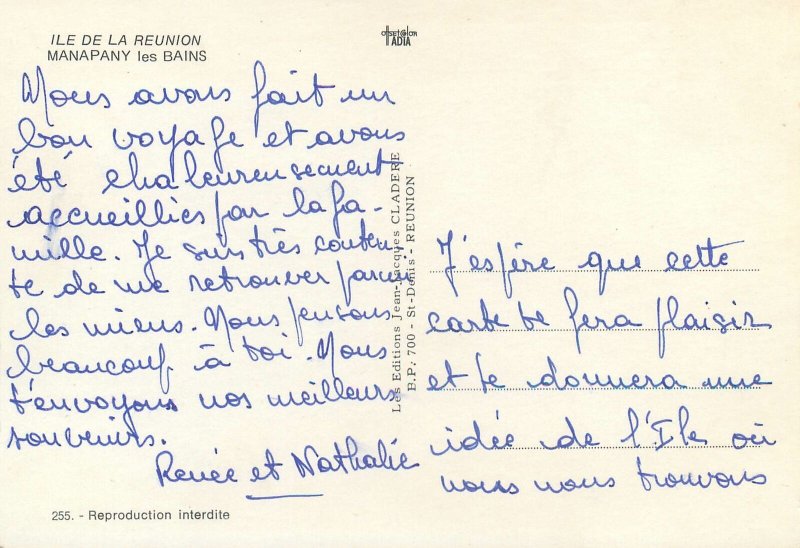 ILE DE LA REUNION
MANAPANY les BAINS
Nous avons fait un
bon voyage et avons
été chaleureusement
accueillies par la fa-
mille. Je suis très conten-
te de me retrouver parmi
les miens. Nous pensons
beaucoup à toi. Nous
t'envoyons nos meilleurs
souvenirs.
Renée et Nathalie
255. - Reproduction interdite
Les Editions Jean-Jacques CLADERE
B.P. 700 - St-Denis - REUNION
ADIA
J'espère que cette
carte te fera plaisir
et te donnera une
idée de l'Ile où
nous nous trouvons